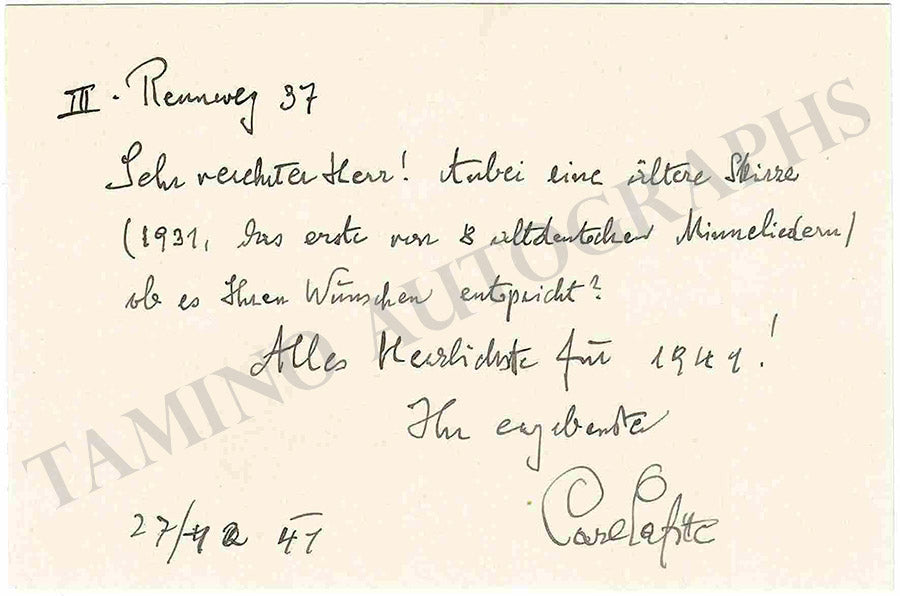 III. Rennweg 37
Sehr verehrter Herr! Anbei eine ältere Skizze
(1931, das erste von 8 altdeutschen Minneliedern)
ob es Ihren Wünschen entspricht?
Alles Herzlichste für 1941!
Ihr ergebenster
Carl Lafite
27/12 41
TAMINO AUTOGRAPHS